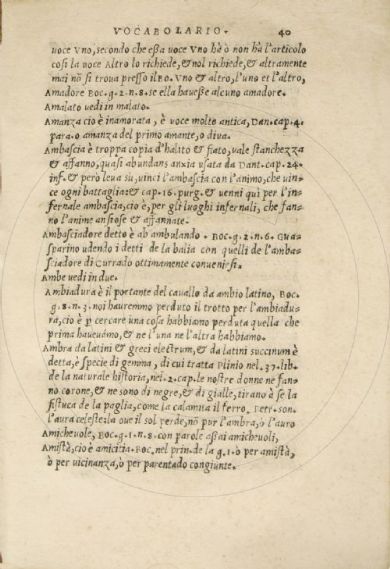 VOCABOLARIO. 40
voce Vno, secondo che eßa voce Vno hè ò non hà l'articolo
cosi la voce Altro lo richiede, & nol richiede, & altramente
mai nõ si trova presso il Bo. Vno & altro, l'uno et l'altro,
Amadore Boc. g. 2. n. 8. se ella haueße alcuno amadore.
Amalato vedi in malato.
Amanza cio è inamorata, è voce molte antica, Dan. cap. 4.
para. o amanza del primo amante, o diva.
Ambascia è troppa copia d'halito & fiato, vale stanchezza
& affanno, quasi abundans anxia usata da Dant. cap. 24.
inf. & però leva su, vinci l'ambascia con l'animo, che uin-
ce ogni battaglia: & cap. 16. purg. & uenni qui per l'in-
fernale ambascia, cio è, per gli luoghi infernali, che fan-
no l'anime ansiose & affannate.
Ambasciadore detto è ab ambulando. Boc. g. 2. n. 6. Gua-
sparino udendo i detti de la balia con quelli de l'amba-
sciadore di Currado ottimamente conuenir-si.
Ambe uedi in due.
Ambiadura è il portante del cauallo da ambio latino, Boc.
g. 8. n. 3. noi hauremmo perduto il trotto per l'ambiadu-
ra, cio è p cercare una cosa habbiamo perduta quella che
prima haueuamo, & ne l'una ne l'altra habbiamo.
Ambra da latini & greci electrum, & da latini succinum è
detta, è specie di gemma, di cui tratta Plinio nel. 37. lib.
de la naturale historia, nel. 2. cap. le nostre donne ne fan-
no corone, & ne sono di negre, & di gialle, tirano à se la
fistuca de la paglia, come la calamita il ferro. Petr. son.
l'aura celeste: la oue il sol perde, nõ pur l'ambra, ò l'auro
Amicheuole, Boc. g. 1. n. 8. con parole aßai amicheuoli,
Amistà, cio è amicitia. Boc. nel prin. de la g. 1. ò per amistà,
ò per uicinanza, ò per parentado congiunte.